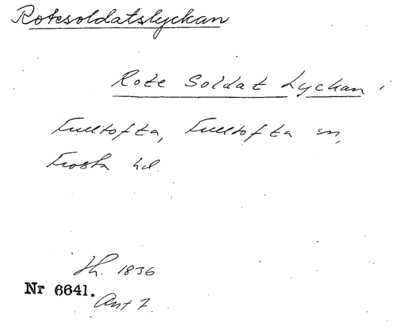 Rotesoldatslyckan
Rote Soldat Lyckan i
Fulltofta, Fulltofta sn,
Frosta hd.
Jh. 1836
Nr 6641.
Ant 7.